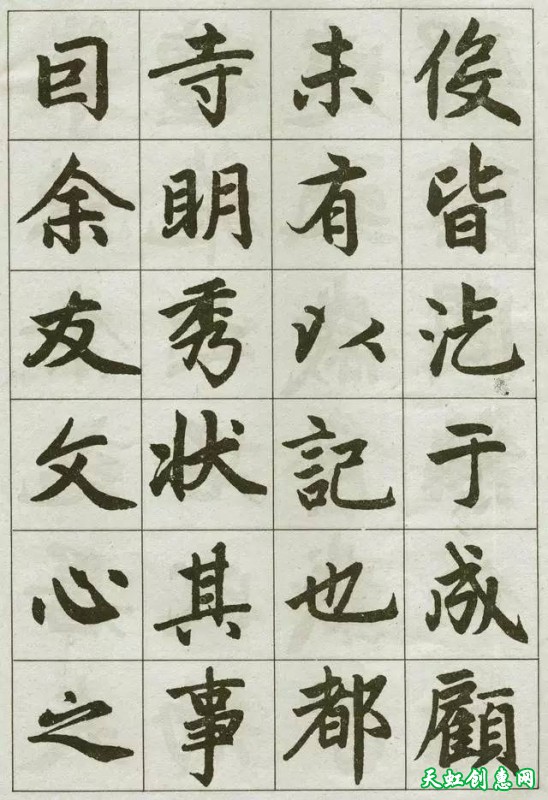 俊皆汔于成顧
未有以記也都
寺明秀狀其事
囙余友文心之
天虹创惠网